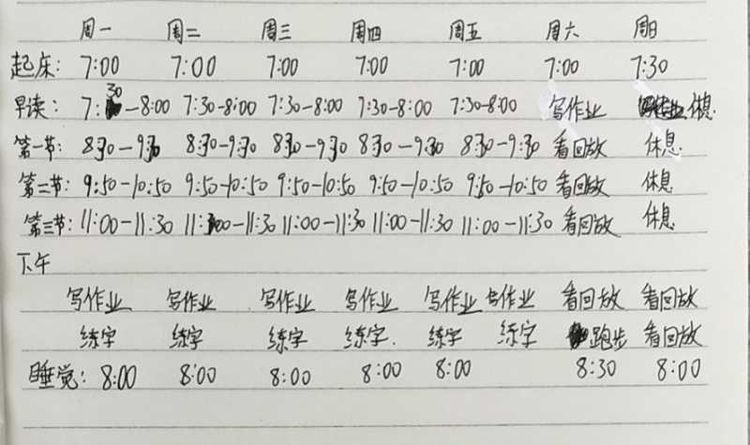 周一 周二 周三 周四 周五 周六 周日
起床: 7:00 7:00 7:00 7:00 7:00 7:00 7:30
早读: 7:30-8:00 7:30-8:00 7:30-8:00 7:30-8:00 7:30-8:00 写作业 休息
第一节: 8:30-9:30 8:30-9:30 8:30-9:30 8:30-9:30 8:30-9:30 看回放 休息
第二节: 9:50-10:50 9:50-10:50 9:50-10:50 9:50-10:50 9:50-10:50 看回放 休息
第三节: 11:00-11:30 11:00-11:30 11:00-11:30 11:00-11:30 11:00-11:30 看回放 休息
下午
写作业 写作业 写作业 写作业 写作业 写作业 看回放 看回放
练字 练字 练字 练字. 练字 练字 跑步 看回放
睡觉: 8:00 8:00 8:00 8:00 8:00 8:30 8:00